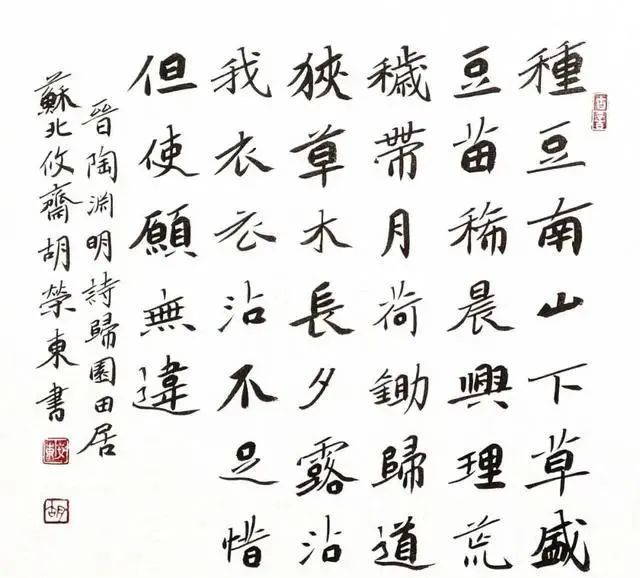 種豆南山下草盛
豆苗稀晨興理荒
穢帶月荷鋤歸道
狹草木長夕露沾
我衣衣沾不足惜
但使願無違
晉陶淵明詩歸園田居
蘇北攸齋胡榮東書
胡